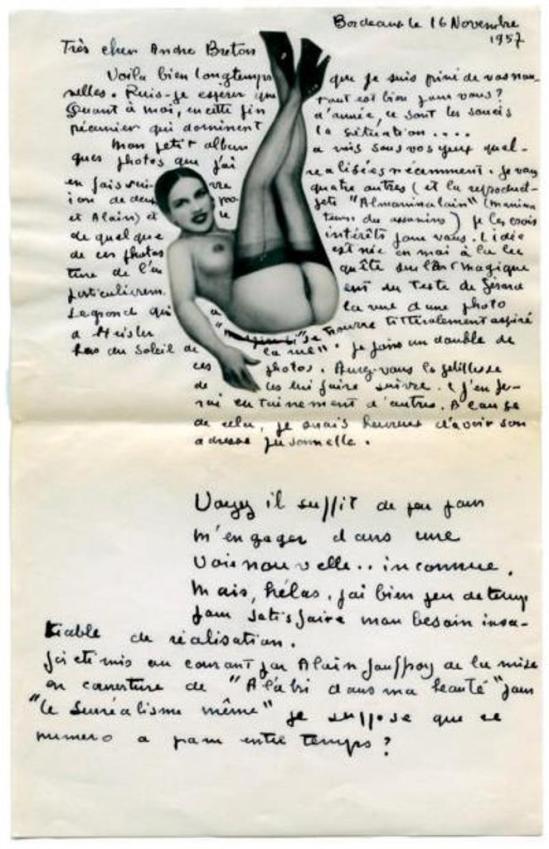 Bordeaux le 16 Novembre
1957
Très cher André Breton
Voilà bien longtemps que je suis privé de vos nou-
velles. Puis-je espérer que tout est bien pour vous?
Quant à moi, en cette fin d'année, ce sont les soucis
pécunier qui dominent la situation ....
Mon petit album a mis sous vos yeux quel-
ques photos que j'ai realisées récemment. Je vous
en fais suivre quatre autres (et la reproduct-
ion de deux
et Alain) et
de quelque intérêts pour vous. L'idée
de ces photos est née en mai à la lec
ture de l'enquête sur l'Art magique
particulièrem ent du Texte de Gérard
Legrand qui a la vue d'une photo
d'Heisler se trouve littéralement aspiré
bas du Soleil de la rue". Je joins un double de
ces photos. Aurez-vous la gentillesse
de les lui faire suivre. J'en fe-
rai certainement d'autres. A cause
de cela, je serais heureux d'avoir son
adresse personnelle.
Voyez il suffit de peu pour
m'engager dans une
voie nouvelle .. inconnue.
Mais, hélas, j'ai bien peu de temps
pour satisfaire mon besoin insa-
tiable de réalisation.
J'ai été mis au courant par Alain Jouffroy de la mise
en couverture de "A l'abri dans ma beauté" pour
"le Surréalisme même" je suppose que ce
numero a paru entre temps?